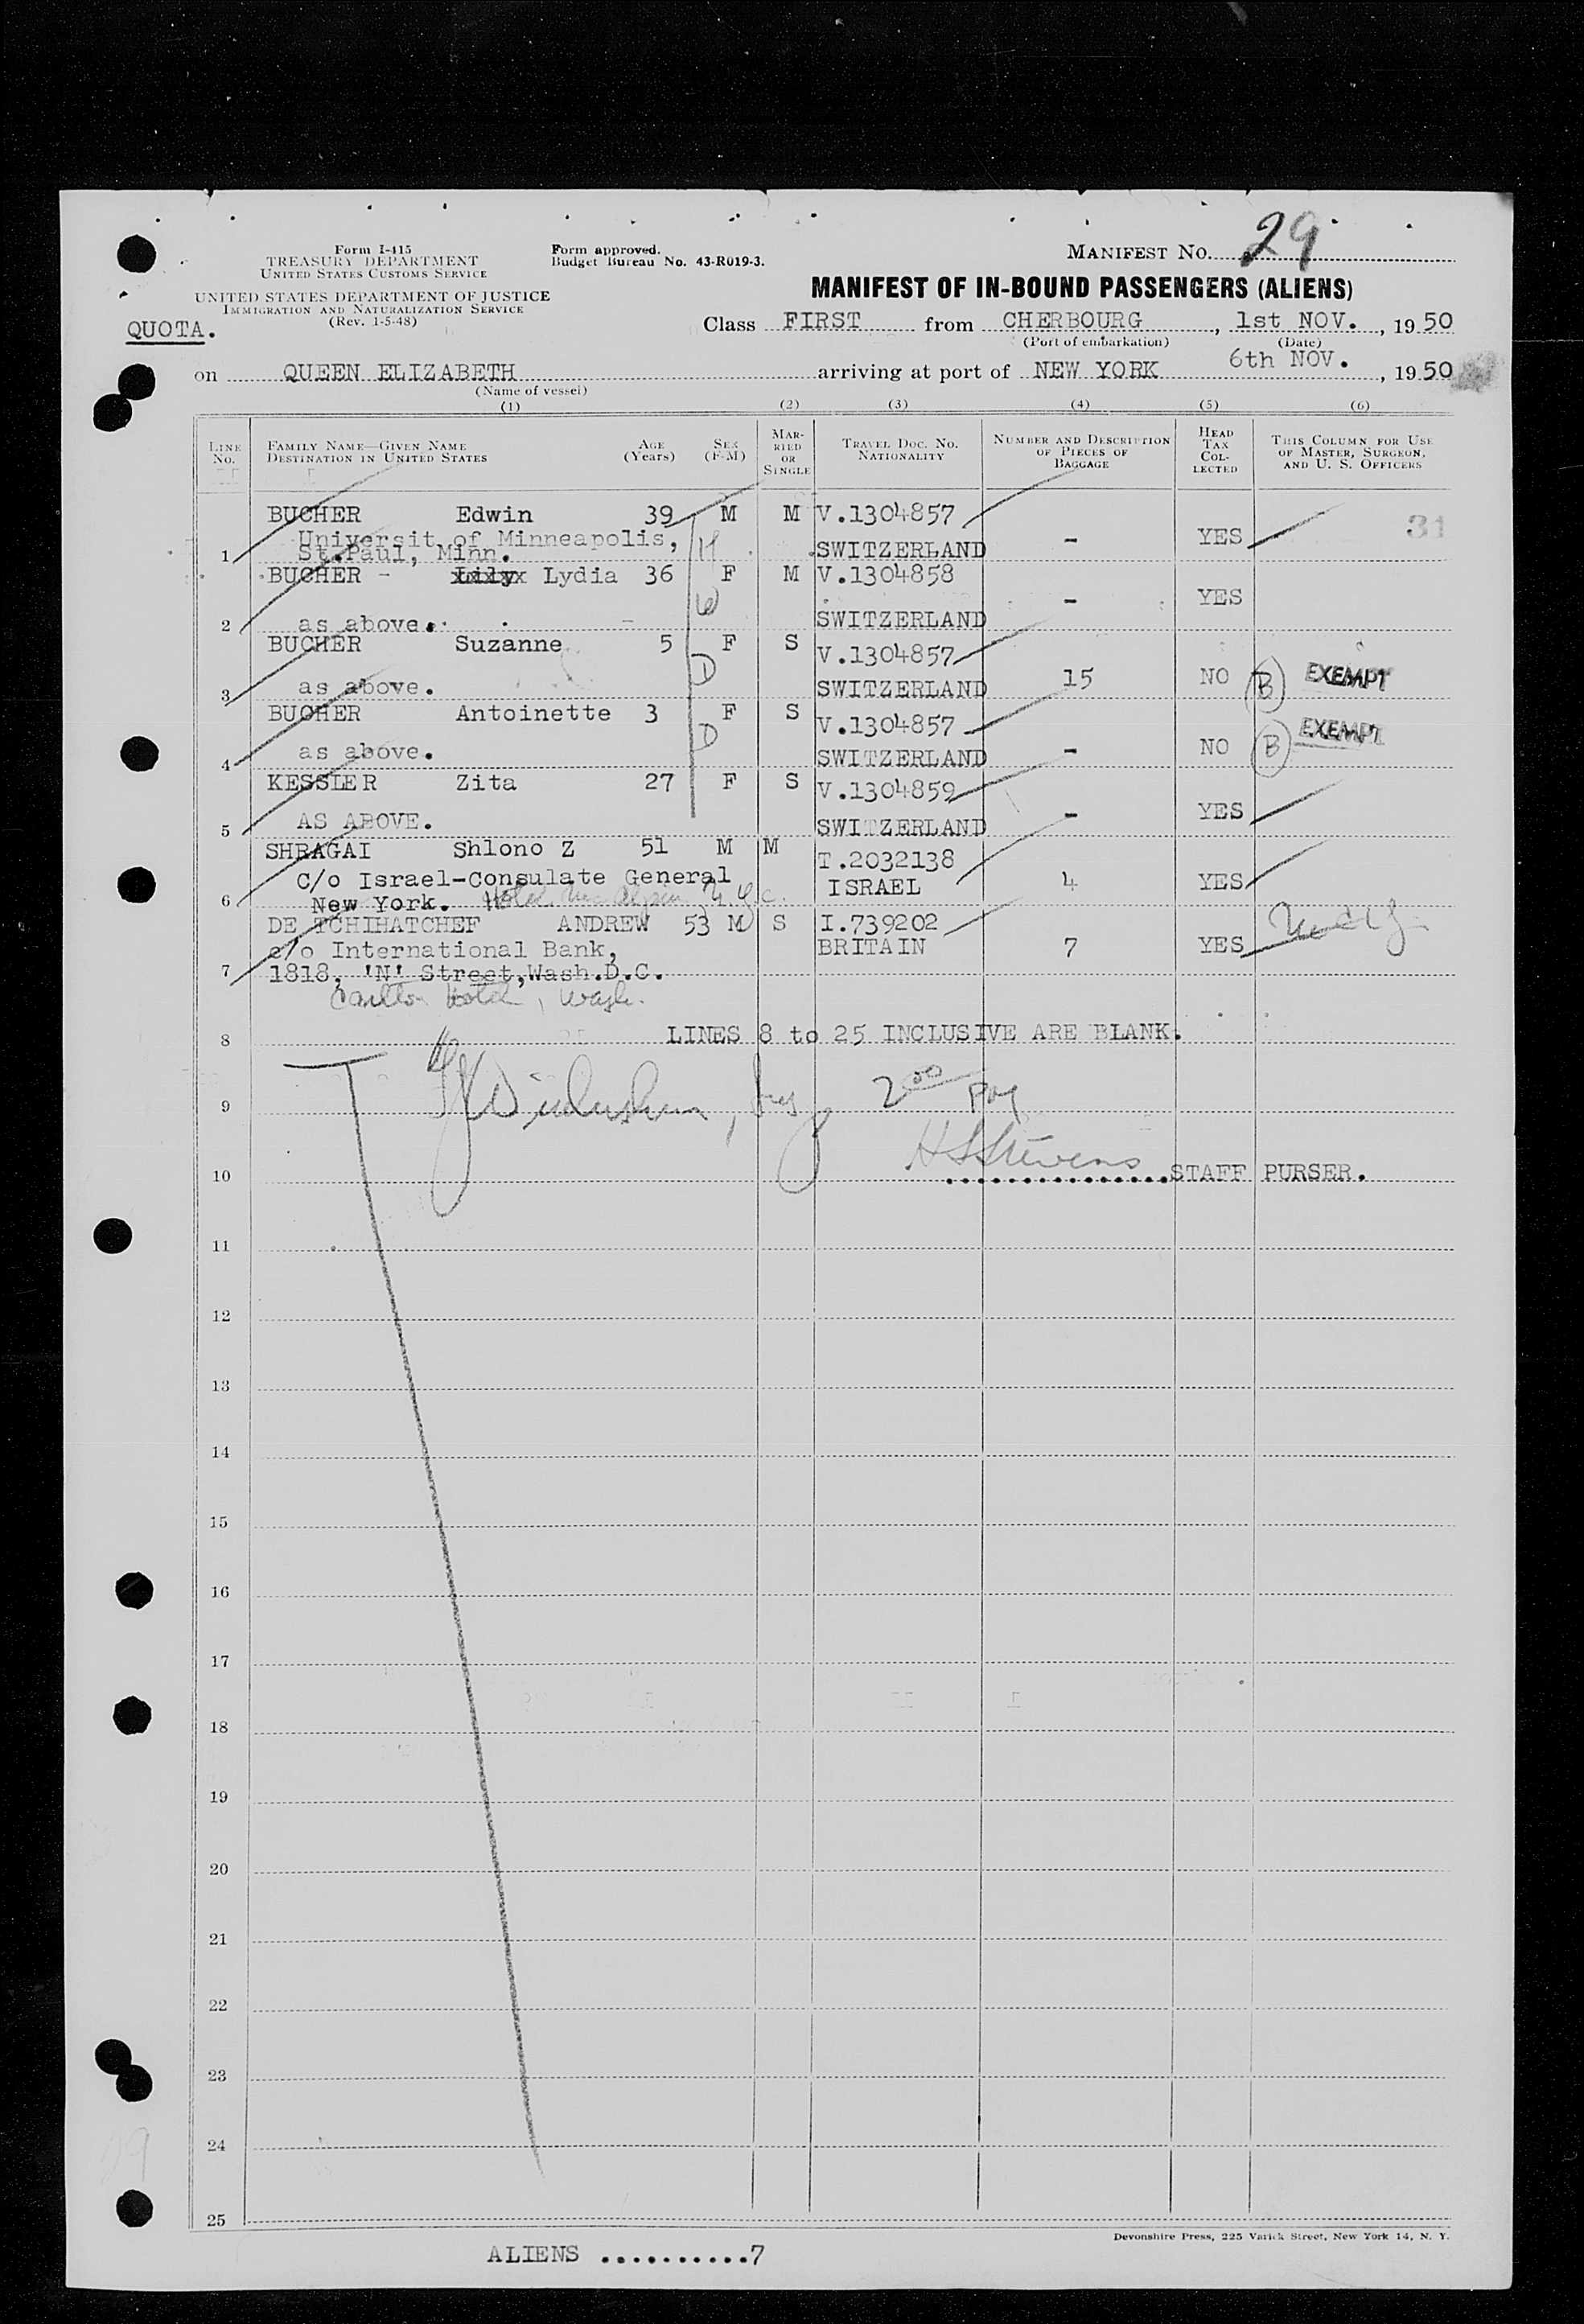 Form I-415
TREASURY DEPARTMENT
UNITED STATES CUSTOMS SERVICE
UNITED STATES DEPARTMENT OF JUSTICE
IMMIGRATION AND NATURALIZATION SERVICE
(Rev. 1-5-48)
QUOTA.
Form approved.
Budget Bureau No. 43-R019-3.
MANIFEST NO. 29
MANIFEST OF IN-BOUND PASSENGERS (ALIENS)
Class FIRST from CHERBOURG, 1st NOV., 1950
(Port of embarkation) (Date)
on QUEEN ELIZABETH arriving at port of NEW YORK 6th NOV., 1950
(Name of vessel)
(1) (2) (3) (4) (5) (6)
LINE NO. FAMILY NAME—GIVEN NAME DESTINATION IN UNITED STATES AGE (Years) SEX (F-M) MARRIED OR SINGLE TRAVEL DOC. NO. NATIONALITY NUMBER AND DESCRIPTION OF PIECES OF BAGGAGE HEAD TAX COLLECTED THIS COLUMN FOR USE OF MASTER, SURGEON, AND U. S. OFFICERS
BUCHER Edwin 39 M M V.1304857
University of Minneapolis, H
1 St.Paul, Minn. SWITZERLAND - YES 31
BUCHER - Lydia 36 F M V.1304858
W
2 as above. SWITZERLAND - YES
BUCHER Suzanne 5 F S V.1304857
D
3 as above. SWITZERLAND 15 NO B EXEMPT
BUCHER Antoinette 3 F S V.1304857
D
4 as above. SWITZERLAND - NO B EXEMPT
KESSLER Zita 27 F S V.1304859
5 AS ABOVE. SWITZERLAND - YES
SHRAGAI Shlono Z 51 M M T.2032138
C/o Israel-Consulate General ISRAEL 4 YES
6 New York. Hotel McAlpin N.Y.C.
DE TCHIHATCHEF ANDREW 53 M S I.739202
c/o International Bank, BRITAIN 7 YES
7 1818, 'N' Street,Wash.D.C.
Carlton Hotel, Wash.
8 LINES 8 to 25 INCLUSIVE ARE BLANK.
9 2 00 pog
10 H S Stevens STAFF PURSER.
11
12
13
14
15
16
17
18
19
20
21
22
23
24
25
Devonshire Press, 225 Varick Street, New York 14, N. Y.
ALIENS ...........7